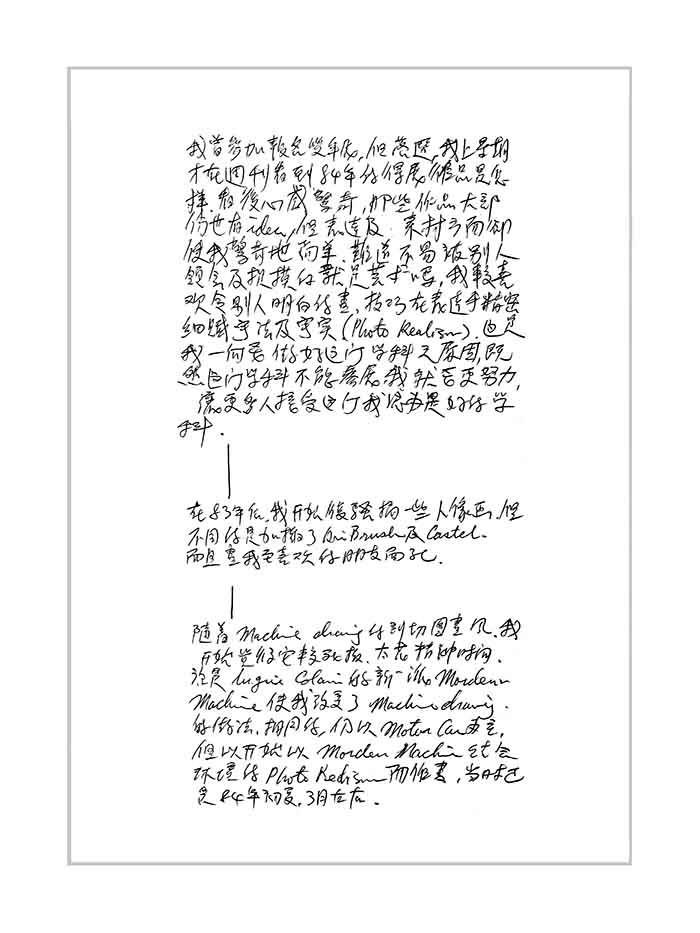 我曾參加報名雙年展,但落選,我上星期
才在週刊看到84年的得展作品是怎
樣.看後心感驚奇,那些作品大部
份也有idea,但表達及 素材方面卻
使我驚奇地簡单.難道不易被别人
領会及抚摸的就是芸术嗎,我較喜
欢令别人明白的畫,技巧在表达手精密
细膩手法及写实(Photo Realism).这是
我一向要做好这门学科之原因,既
然这门学科不能參展,我就要更努力,
讓更多人接受这门我认为是好的学
科.
在83年尾,我开始後 描一些人像画,但
不同的是加 了Air Brush及Castel.
而且畫我至喜欢的朋友面孔.
隨着Machine drawing的剖切圖畫风.我
开始觉得它較死板、太花精神时间.
於是Luigi Colani的新 Mordern
Machine使我改变了Machine drawing.
的做法.相同的,仍以Motor Car为主,
但以开始以Morden Machin结合
环境的Photo Realism而作畫,当时已
是84年初夏,3月左右.